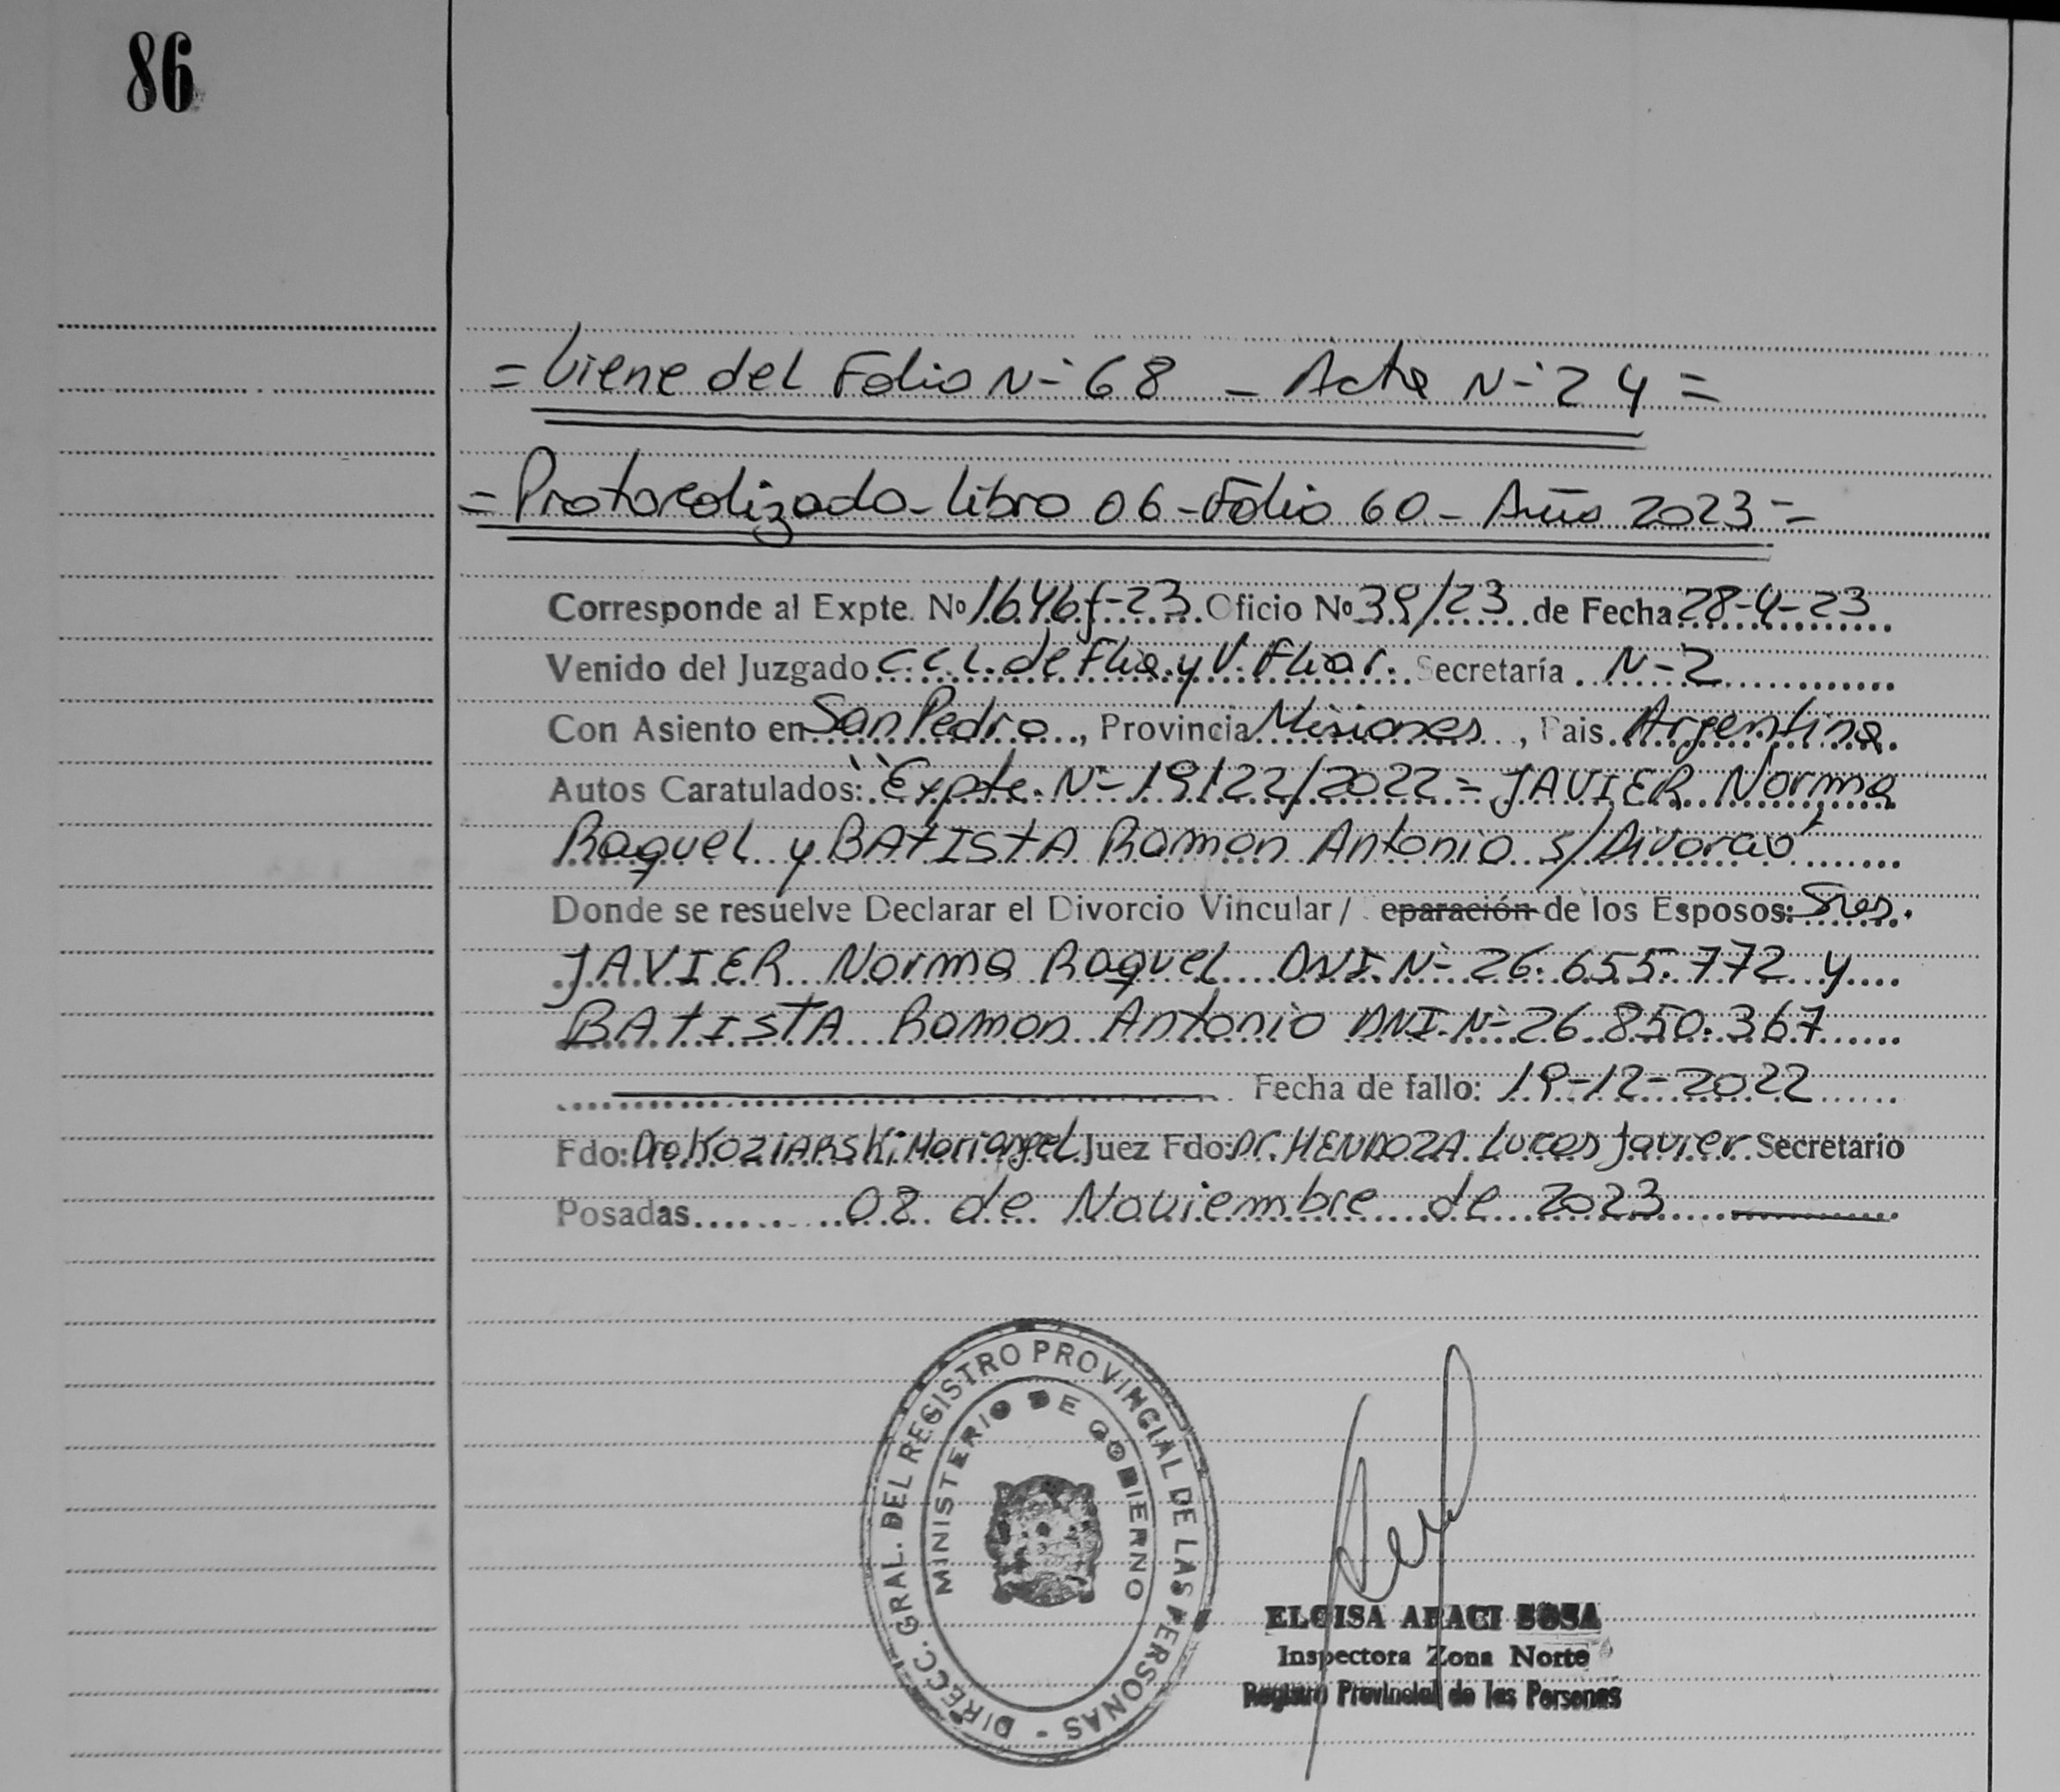 86
= Viene del Folio Nº 68 - Acta Nº 24 =
= Protocolizado - libro 06 - Folio 60 - Año 2023 =
Corresponde al Expte. Nº 1646f-23 Oficio Nº 39/23 de Fecha 28-4-23
Venido del Juzgado C.C.L. de Flia. y V. Fliar. Secretaría Nº 2
Con Asiento en San Pedro, Provincia Misiones, Pais Argentina.
Autos Caratulados: "Expte. Nº 19122/2022 = JAVIER Norma
Raquel y BATISTA Ramon Antonio s/Divorcio"
Donde se resuelve Declarar el Divorcio Vincular / eparación de los Esposos: Sres.
JAVIER Norma Raquel DNI. Nº 26.655.772 y
BATISTA Ramon Antonio DNI. Nº 26.850.367
Fecha de fallo: 19-12-2022
Fdo: Dra. KOZIARSKi Mariangel Juez Fdo: Dr. MENDOZA Lucas Javier Secretario
Posadas 08 de Noviembre de 2023
DIRECC. GRAL. DEL REGISTRO PROVINCIAL DE LAS PERSONAS -
MINISTERIO DE GOBIERNO
ELOISA ARACI SOSA
Inspectora Zona Norte
Registro Provincial de las Personas